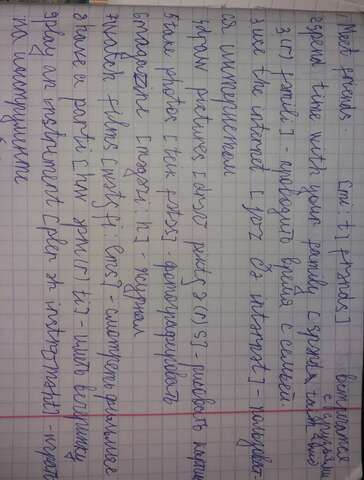 1 Meet friends. [mi:t frendz] встретится
с друзьями
2 spend time with your family [spend taɪm wɪð
jɔ:(r) famili] - проводить время с семьей.
3 use the internet [ju:z ðə internet] - пользова-
ся интернетом
4 draw pictures [drɔ: pɪktʃə(r)s] - рисовать
5 take photos [teɪk fotos]. фотографировать
6 magazine [mægəzi:n] - журнал
7 watch films [wɒtʃ fi lms] - смотреть фильмы
8 have a party [hæv ə pɑ:(r)ti] - иметь вечеринку
9 play an instrument [pleɪ ən instrəmənt] - играть
на инструменте